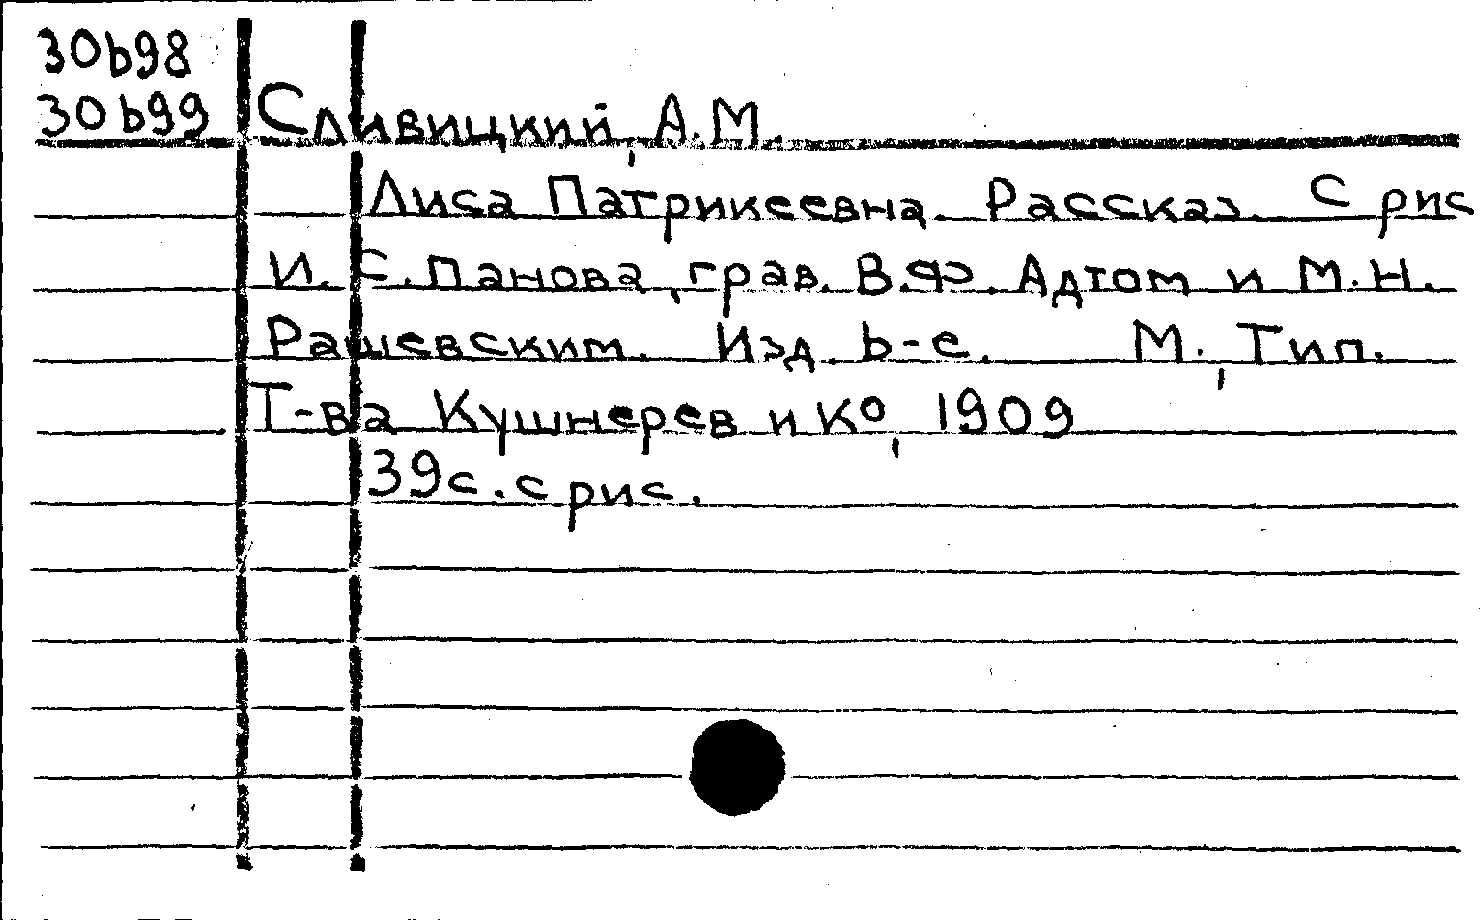 30b98
30b99 Сливицкий, А.М.
Лиса Патрикеевна. Рассказ. С рис
И. С. Панова, грав. В.Ф. Адтом и М.Н.
Рашевским. Изд. b-е. М., Тип.
Т-ва Кушнерев и К⁰, 1909
39с. с рис.